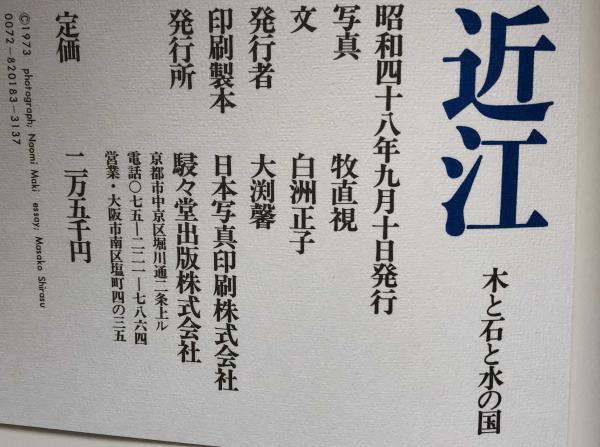 近江
木と石と水の国
昭和四十八年九月十日発行
写真 牧直視
文 白洲正子
発行者 大渕馨
印刷製本 日本写真印刷株式会社
発行所 駸々堂出版株式会社
京都市中京区堀川通二条上ル
電話〇七五―二二一―七八六四
営業・大阪市南区塩町四の三五
定価 二万五千円
©1973 photograph; Naomi Maki essay; Masako Shirasu
0072-820183-3137